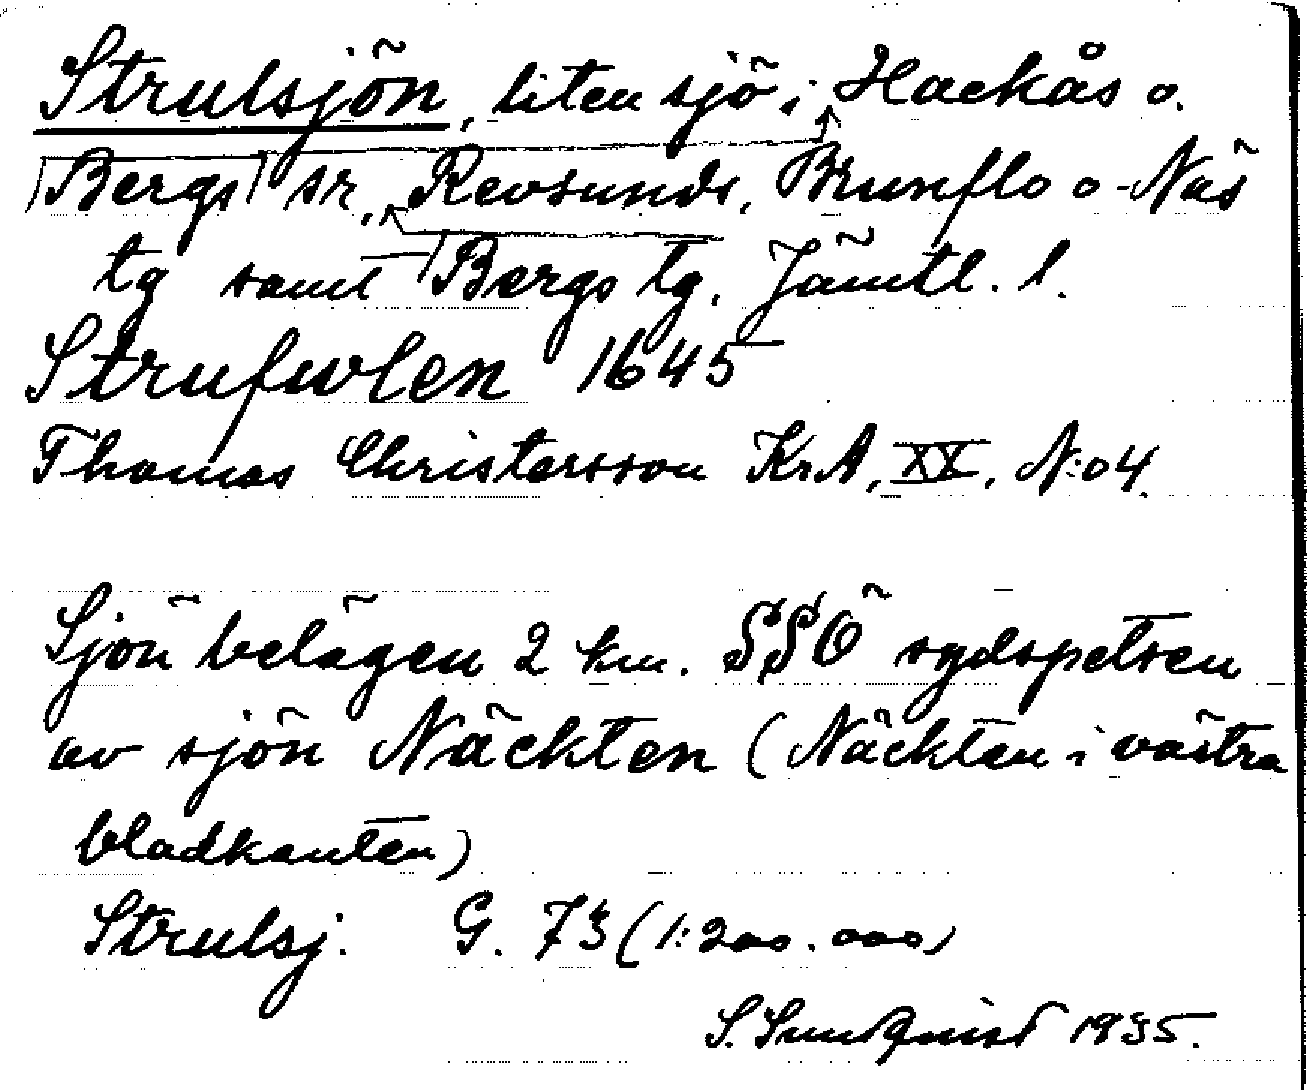 Strulsjön, liten sjö i Hackås o.
Bergs sr, Revsunds, Brunflo o Näs
tg samt Bergs tg. Jämtl. l.
Strufwlen 1645
Thomas Christersson KrA, XX, N:o 4.
Sjön belägen 2 km. SSÖ sydspetsen
av sjön Näckten (Näckten i västra
bladkanten)
Strulsj. G. 73 (1:200.000)
S. Sundquist 1935.